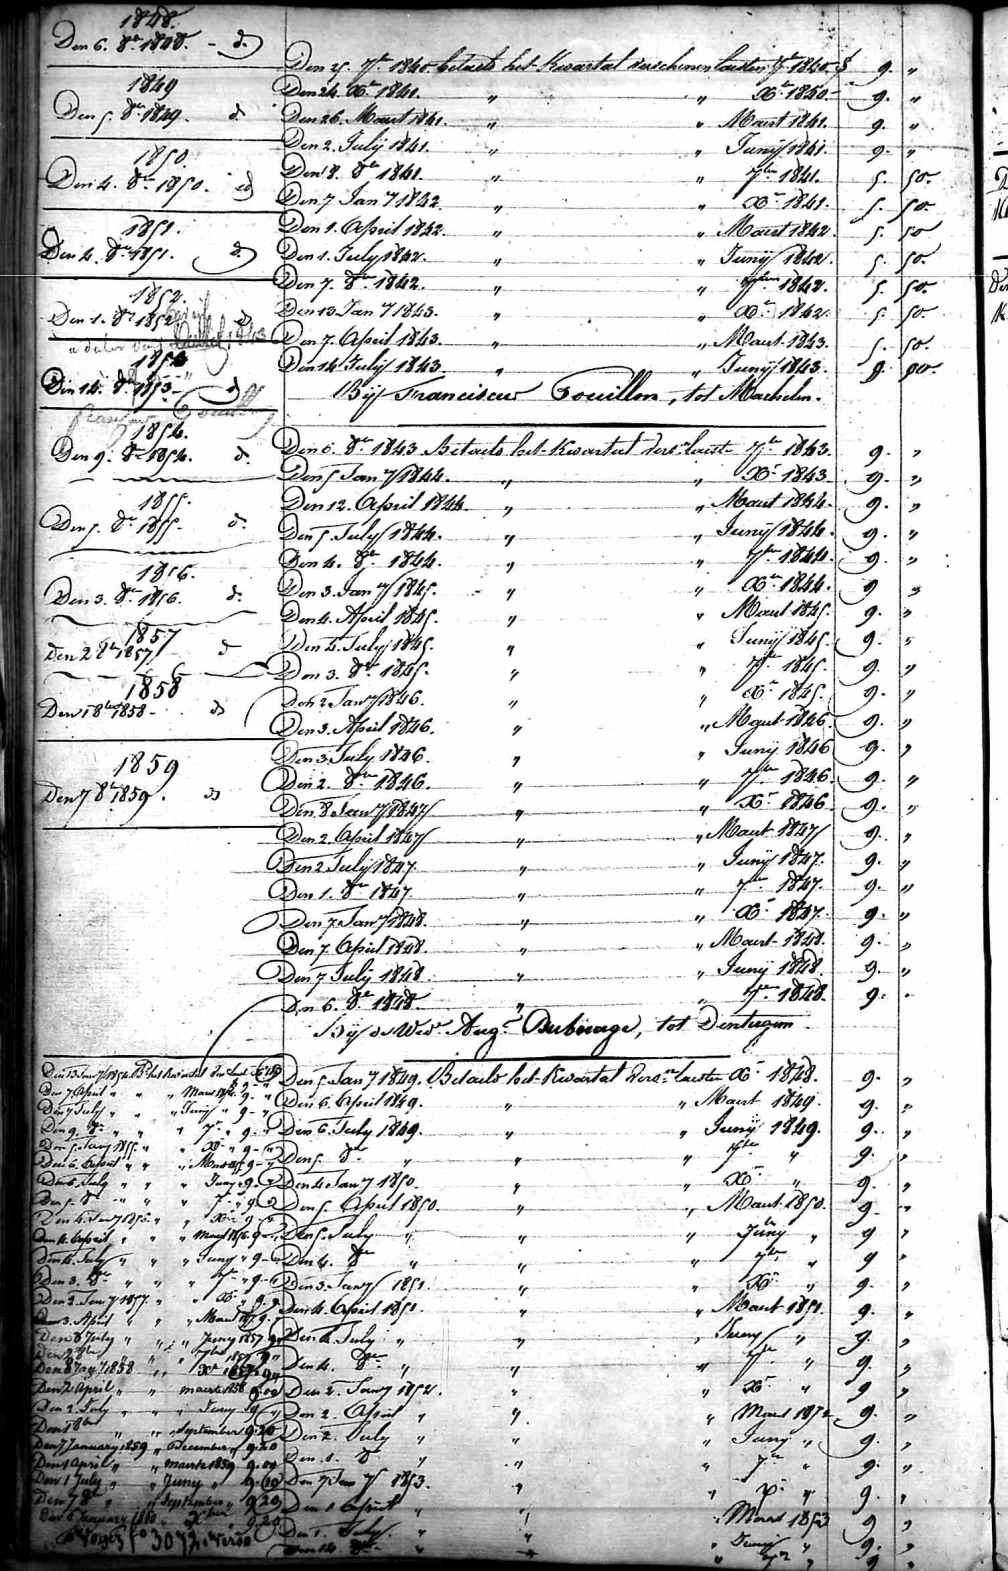 1848.
Den 6. 8re 1848. - d.
1849
Den 5. 8re 1849. d
1850.
Den 4. 8re 1850. d
1851.
Den 4. 8re 1851. d.
1852.
Den 1. 8re 1852 d
1853
Den 14. 8re 1853 - d
1854.
Den 9. 8re 1854. d.
1855.
Den 5. 8re 1855. d.
1856.
Den 3. 8re 1856. d.
1857
Den 2 8re 1857 d
1858
Den 1 8re 1858 - ds
1859
Den 7 8re 1859. ds
Den 25. 7re 1840. betaelt het Kwartal verschenen laesten 7re 1840. f 9. "
Den 24. Xre 1840. " " Xre 1840. - 9. "
Den 26. Maert 1841. " " Maert 1841. 9. "
Den 2. July 1841. " " Junij 1841. 9. "
Den 8. 8re 1841. " " 7bre 1841. 5. 50.
Den 7 Jany 1842. " " Xre 1841. 5. 50.
Den 1. April 1842. " " Maert 1842. 5. 50
Den 1. July 1842. " " Junij 1842. 5. 50.
Den 7. 8re 1842. " " 7bre 1842. 5. 50
Den 13 Jany 1843. " " Xre 1842. 5. 50
Den 7. April 1843. " " Maert 1843. 5. 50.
Den 14 July 1843. " " Junij 1843.
Bij Franciscus Couillon, tot Machelen.
Den 6. 8re 1843 Betaelt het Kwartal vers. laeste 7re 1843. 9. "
Den 5 Jany 1844. " " Xre 1843. 9. "
Den 12. April 1844. " " Maert 1844. 9. "
Den 5 July 1844. " " Junij 1844. 9. "
Den 4. 8re 1844. " " 7bre 1844. 9. "
Den 3. Jany 1845. " " Xre 1844. 9 "
Den 4. April 1845. " " Maert 1845. 9. "
Den 4 July 1845. " " Junij 1845. 9. "
Den 3. 8re 1845. " " 7re 1845. 9. "
Den 2 Jany 1846. " " Xre 1845. 9. "
Den 3. April 1846. " " Maert 1846. 9. "
Den 3 July 1846. " " Junij 1846 9. "
Den 2. 8re 1846. " " 7re 1846. 9. "
Den 8 Jany 1847 " " Xre 1846. 9. "
Den 2. April 1847 " " Maert 1847 9. "
Den 2 July 1847. " " Junij 1847. 9. "
Den 1. 8re 1847. " " 7re 1847. 9. "
Den 7 Jany 1848. " " Xre 1847. 9. "
Den 7. April 1848. " " Maert 1848. 9. "
Den 7 July 1848. " " Junij 1848. 9. "
Den 6. 8re 1848 " " 7re 1848. 9. "
Bij de Wede Augn Duburage, tot Dentergem
Den 5. Jany 1849. Betaelt het Kwartal vers. laesten Xre 1848. 9. "
Den 6. April 1849. " " Maert 1849. 9. "
Den 6 July 1849. " " Junij 1849. 9. "
Den 5. 8re " " 7bre " 9. "
Den 4 Jany 1850. " " Xre " 9. "
Den 5. April 1850. " " Maert 1850. 9. "
Den 5. July " " " Juny " 9 "
Den 4. 8re " " 7re " 9 "
Den 3. Jany 1851 " " Xre " 9. "
Den 4. April 1851. " " Maert 1851. 9. "
Den 4. July " " " Juny " 9. "
Den 4. 8re " " " 7re " 9. "
Den 2. Jany 1852. " " Xre " 9. "
Den 2. April " " " Maert 1852 9. "
Den 2. July " " " Juny " 9. "
Den 1. 8 " " " 7re " 9. "
Den 7 Jany 1853 " " 9. "
Den 1 April " " " Maert 1853 9. "
Den 1. July. " " " Junij " 9. "
Den 14 8re " " 9 "
Den 13 Jany 1854
Den 7 April " " " Maert 1854. 9. "
Den 7 July " " " Juny " 9 - "
Den 9. 8re " " " 7re " 9 - "
Den 5. Jany 1855. " " Xre " 9 - "
Den 6. April " " " Maert 1855. 9 - "
Den 6. July " " " Juny " 9 - "
Den 5. 8re " " " 7re " 9 - "
Den 4. Jany 1856. " " Xre " 9 - "
Den 4. April " " " Maert 1856. 9 - "
Den 4. July " " " Juny " 9 - "
Den 3. 8re " " " 7re " 9 - "
Den 2. Jany 1857. " " Xre " 9 - "
Den 3. April " " " Maert 1857 9 - "
Den 3 July " " " Juny 1857 9
Den 2 8bre " " " 7bre 1857 9 "
Den 8 Jany 1858 " " Xre 1857 9 "
Den 2 April " " maerte 1858 9.00
Den 2 July " " " Juny 9 "
Den 1 8bre " " September 9.20
Den 7 January 1859 " December 9.20
Den 1 April " " maerte 1859 9.00
Den 1 July " " Juny " 9.10
Den 7 8re " " September 9.20
Den 6 January 1860 9.20
verso